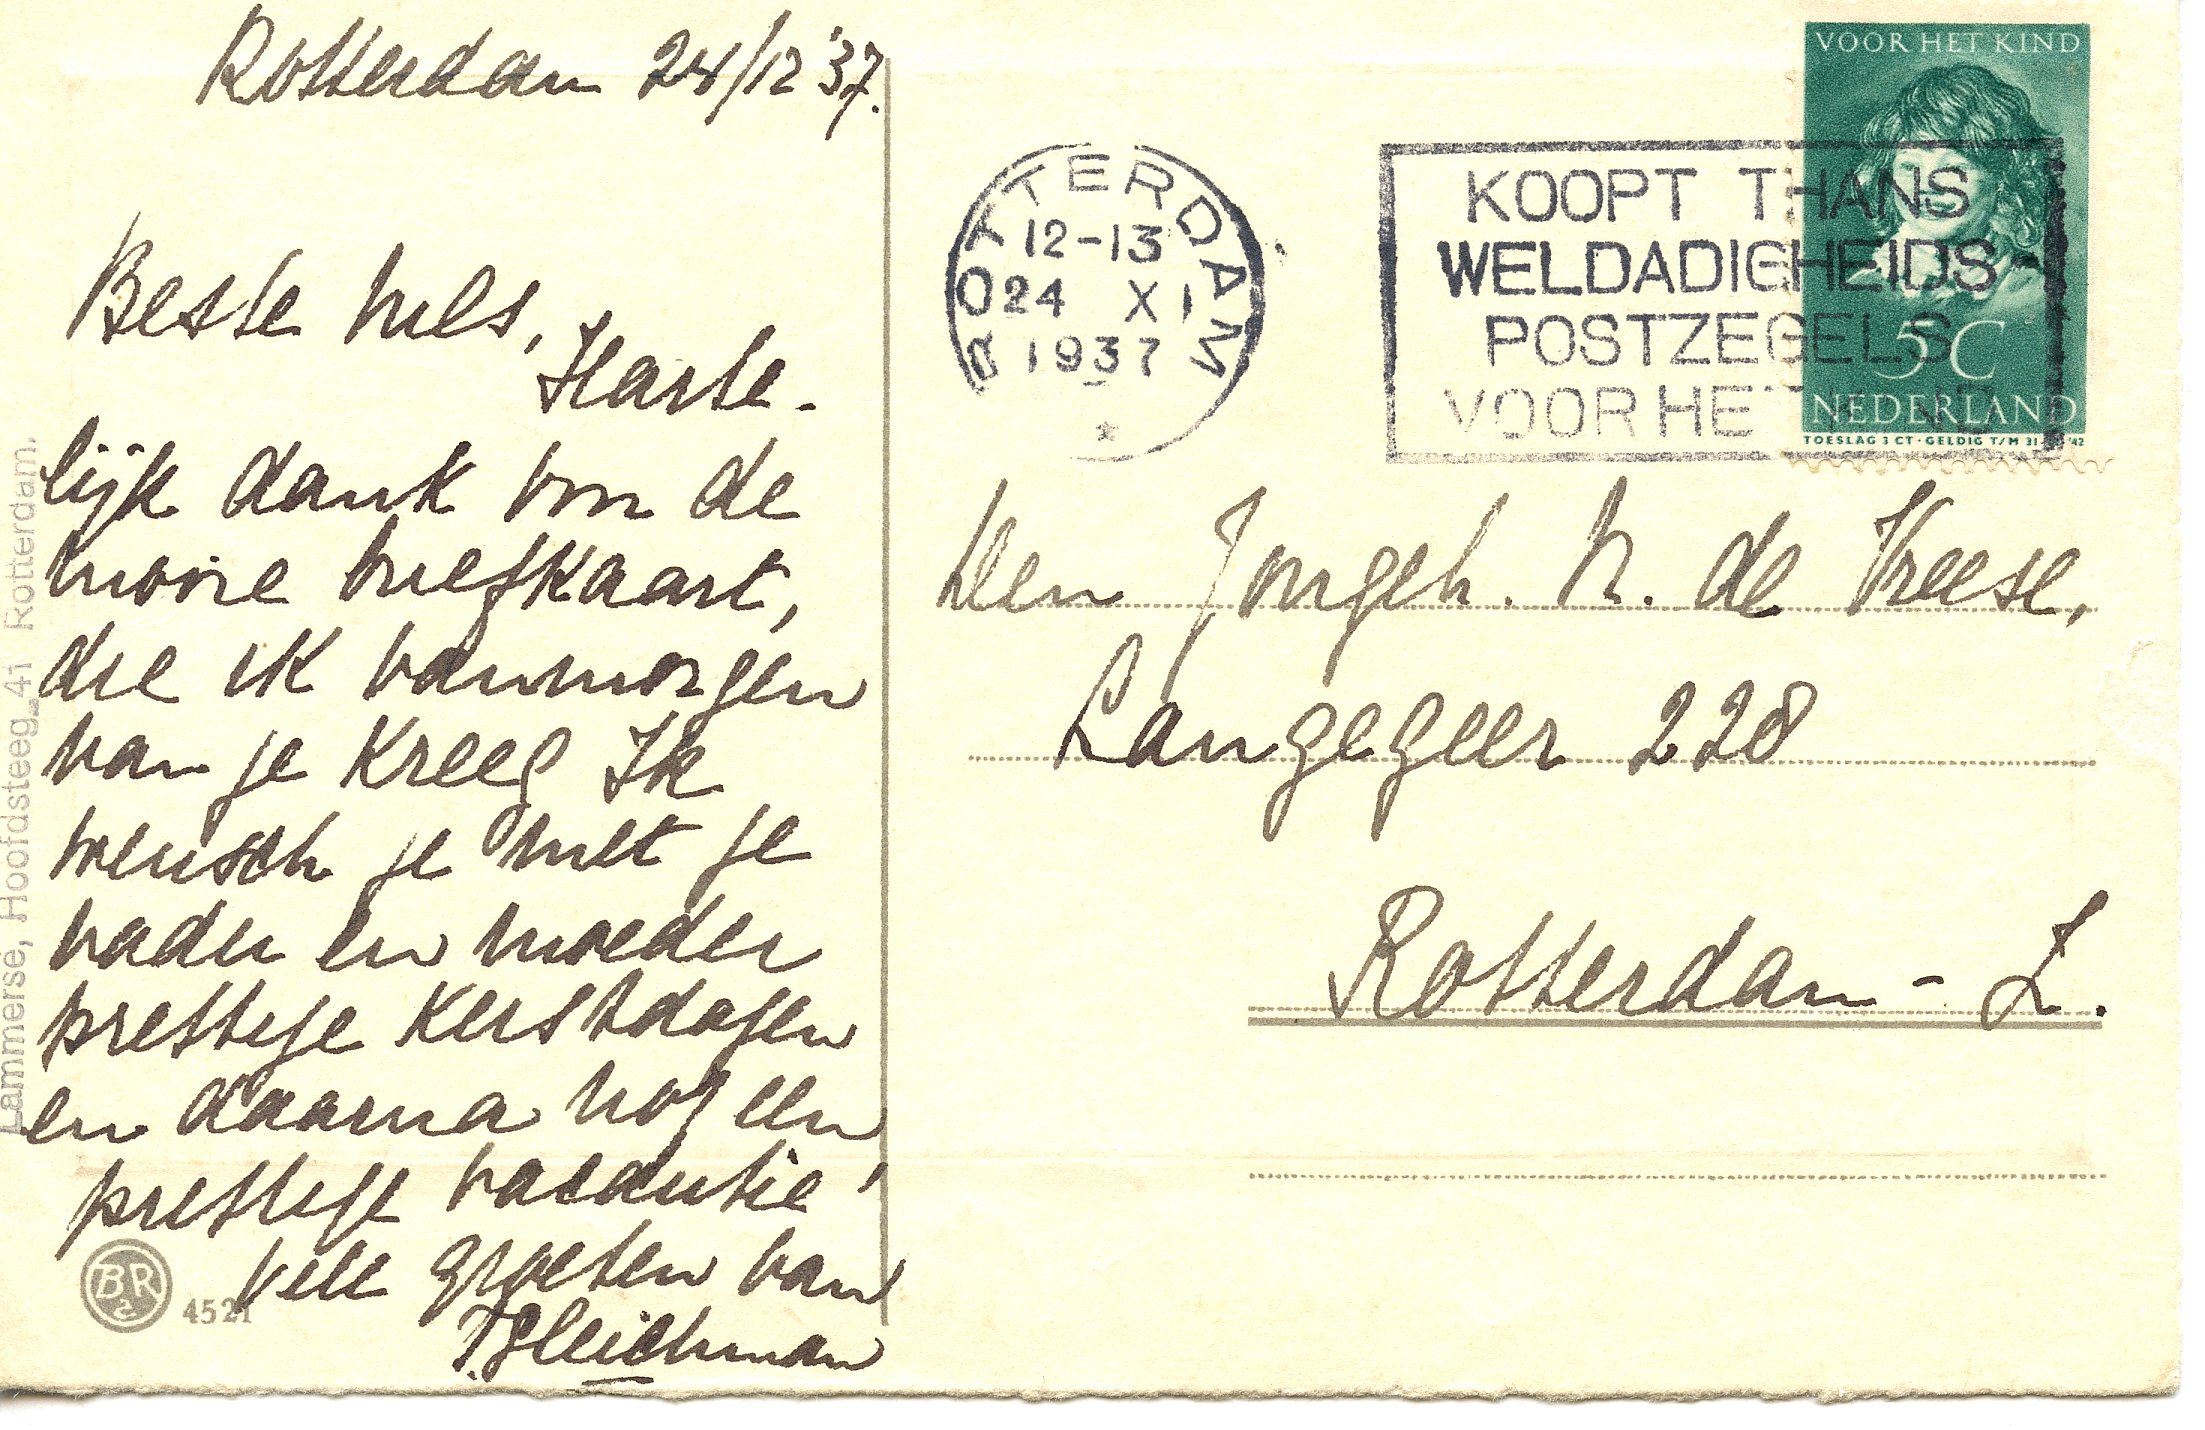 Rotterdam 24/12 '37.
Beste Nies,
Harte-
lijk dank voor de
mooie briefkaart,
die ik vanmorgen
van je kreeg Ik
wensch je met je
vader en moeder
prettige Kerstdagen
en daarna nog een
prettige vacantie!
Vele groeten van
T. Gleichman
Lammerse, Hoofdsteeg 41 Rotterdam.
BR
2
4521
ROTTERDAM
12-13
24 XI
1937
KOOPT THANS
WELDADIGHEIDS-
POSTZEGELS
VOOR HET KIND
VOOR HET KIND
5 C
NEDERLAND
TOESLAG 3 CT · GELDIG T/M 31- '42
Den Jongeh. N. de Vreese,
Langegeer 228
Rotterdam - Z.